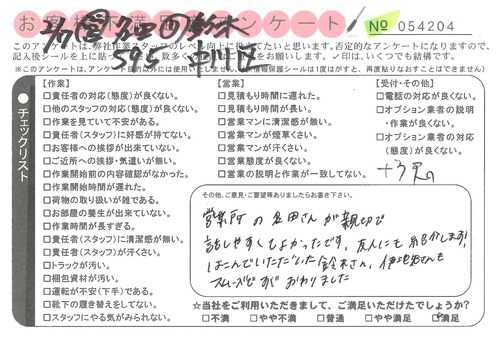 お客様不満足度アンケート № 054204
このアンケートは、弊社作業スタッフのレベル向上に役立てたいと思います。否定的なアンケートになりますので、
記入後シールを上に貼って
をお願いします。✓印は、いくつでも結構です。
【作業】
□責任者の対応(態度)が良くない。
□他のスタッフの対応(態度)が良くない。
□作業を見ていて不安がある。
□責任者(スタッフ)に好感が持てない。
□お客様への挨拶が出来ていない。
□ご近所への挨拶・気遣いが無い。
□作業開始前の内容確認がなかった。
□作業開始時間が遅れた。
□荷物の取り扱いが雑である。
□お部屋の養生が出来ていない。
□作業時間が長すぎる。
□責任者(スタッフ)に清潔感が無い。
□責任者(スタッフ)が汗くさい。
□トラックが汚い。
□梱包資材が汚い。
□運転が不安(下手)である。
□靴下の履き替えをしてない。
□スタッフにやる気がみられない。
【営業】
□見積もり時間に遅れた。
□見積もり時間が長い。
□営業マンに清潔感が無い。
□営業マンが煙草くさい。
□営業マンが汗くさい。
□営業態度が良くない。
□営業の説明と作業が一致してない。
【受付・その他】
□電話の対応が良くない。
□オプション業者の説明
・作業が良くない。
□オプション業者の対応
(態度)が良くない。
チェックリスト
その他、ご意見・ご要望等ありましたらお書き下さい。
営業所の名田さんが親切で
話しやすくてよかったです。友人にも紹介します!
はこんでいただいた鈴木さん、伊地知さんも
スムーズで
おわりました
☆当社をご利用いただきまして、ご満足いただけたでしょうか?
□不満 □やや不満 □普通 □やや満足 □満足